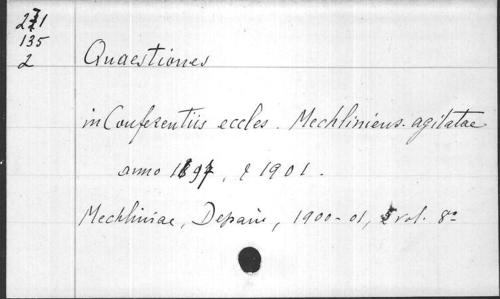 271
135
2
Quaestiones
in Conferentiis eccles. Mechliniens. agitatae
anno 1897, & 1901.
Mechliniae, Dessain, 1900-01, vol. 8°